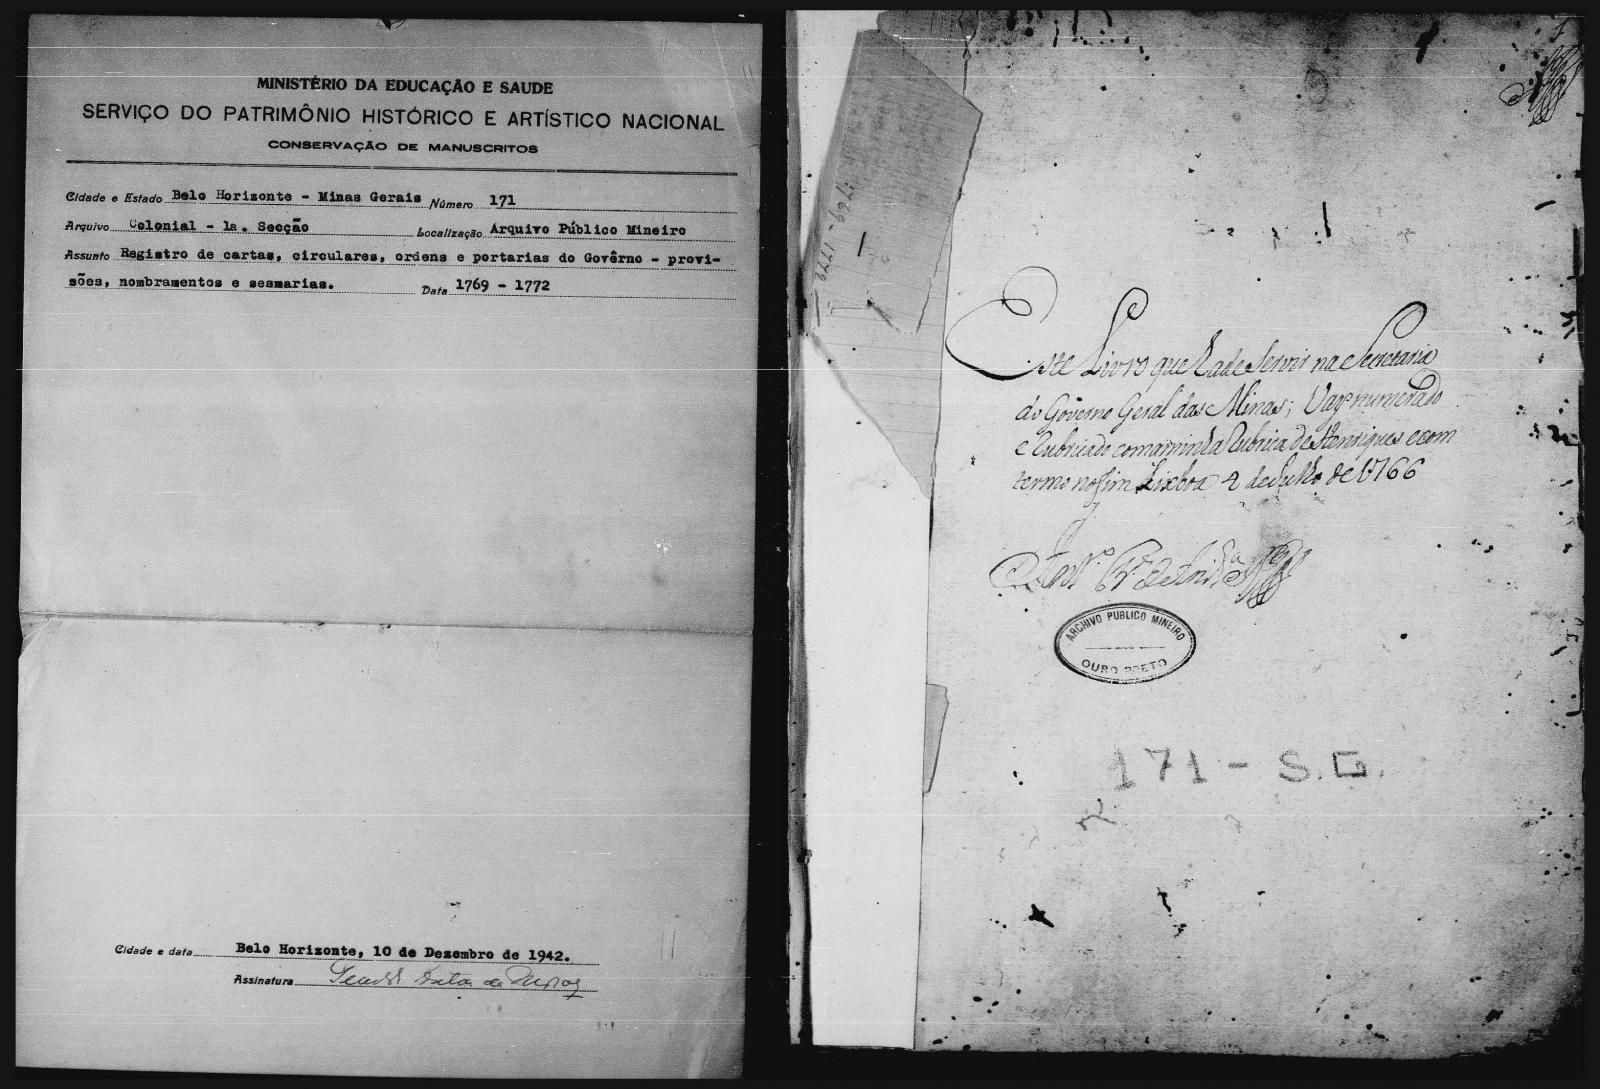 MINISTÉRIO DA EDUCAÇÃO E SAUDE
SERVIÇO DO PATRIMÔNIO HISTÓRICO E ARTÍSTICO NACIONAL
CONSERVAÇÃO DE MANUSCRITOS
Cidade e Estado Belo Horizonte - Minas Gerais Número 171
Arquivo Colonial - 1a. Secção Localização Arquivo Público Mineiro
Assunto Registro de cartas, circulares, ordens e portarias do Govêrno - provi-
sões, nombramentos e sesmarias. Data 1769 - 1772
Cidade e data Belo Horizonte, 10 de Dezembro de 1942.
Assinatura
1769-1772
Este Livro que hade Servir na Secretaria
do Governo Geral das Minas; Vay numerado
e Rubricado com a minha Rubrica de Henriques e com
termo no fim Lixboa 2 de Julho de 1766
ARCHIVO PUBLICO MINEIRO
OURO PRETO
171 - S.G.